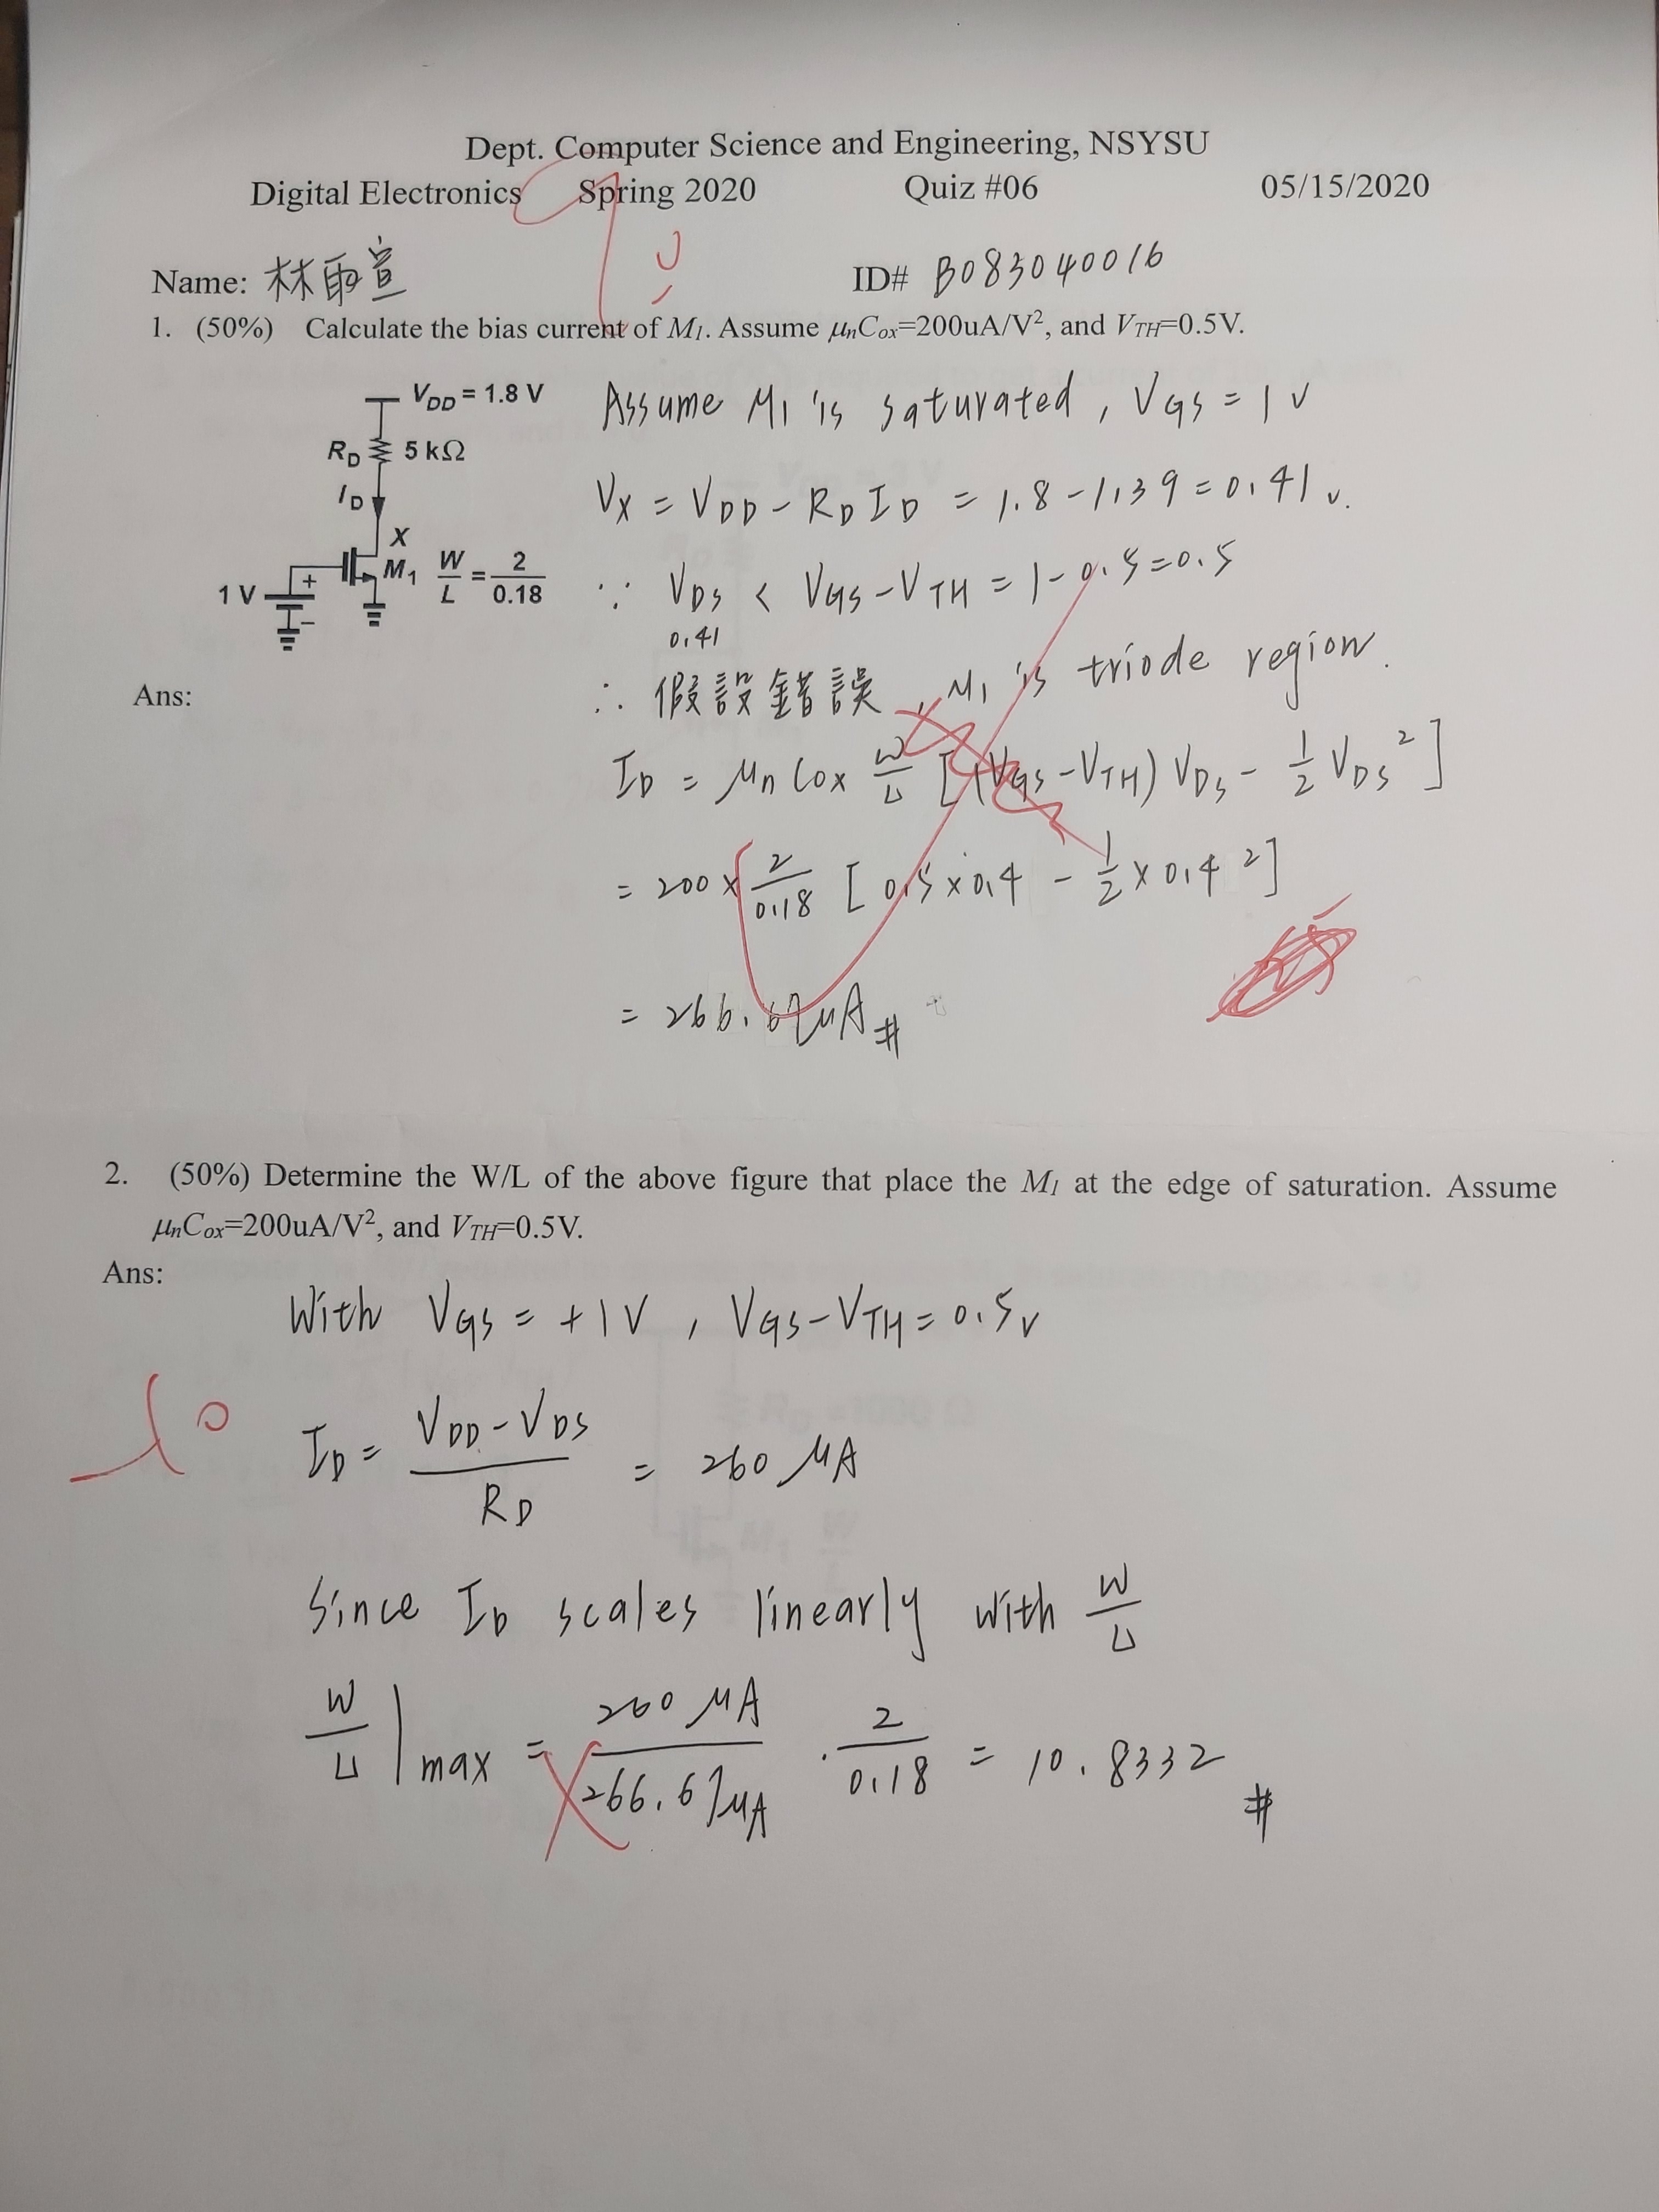 Dept. Computer Science and Engineering, NSYSU
Digital Electronics Spring 2020 Quiz #06 05/15/2020
Name: 林雨宣 ID# B083040016
1. (50%) Calculate the bias current of M1. Assume μnCox=200uA/V², and VTH=0.5V.
VDD = 1.8 V
RD 5 kΩ
ID
X
M1 W/L = 2/0.18
1 V + −
Assume M1 is saturated, VGS = 1 V
VX = VDD - RD ID = 1.8 - 1.39 = 0.41 V.
∵ VDS < VGS - VTH = 1 - 0.5 = 0.5
0.41
∴ 假設錯誤, M1 is triode region.
Ans:
ID = μn Cox W/L [(VGS - VTH) VDS - 1/2 VDS²]
= 200 × 2/0.18 [0.5 × 0.4 - 1/2 × 0.4²]
= 266.67 μA #
2. (50%) Determine the W/L of the above figure that place the M1 at the edge of saturation. Assume
μnCox=200uA/V², and VTH=0.5V.
Ans:
With VGS = +1V, VGS - VTH = 0.5V
10
ID = (VDD - VDS)/RD = 260 μA
Since ID scales linearly with W/L
W/L | max = 260 μA/266.67 μA · 2/0.18 = 10.8332 #